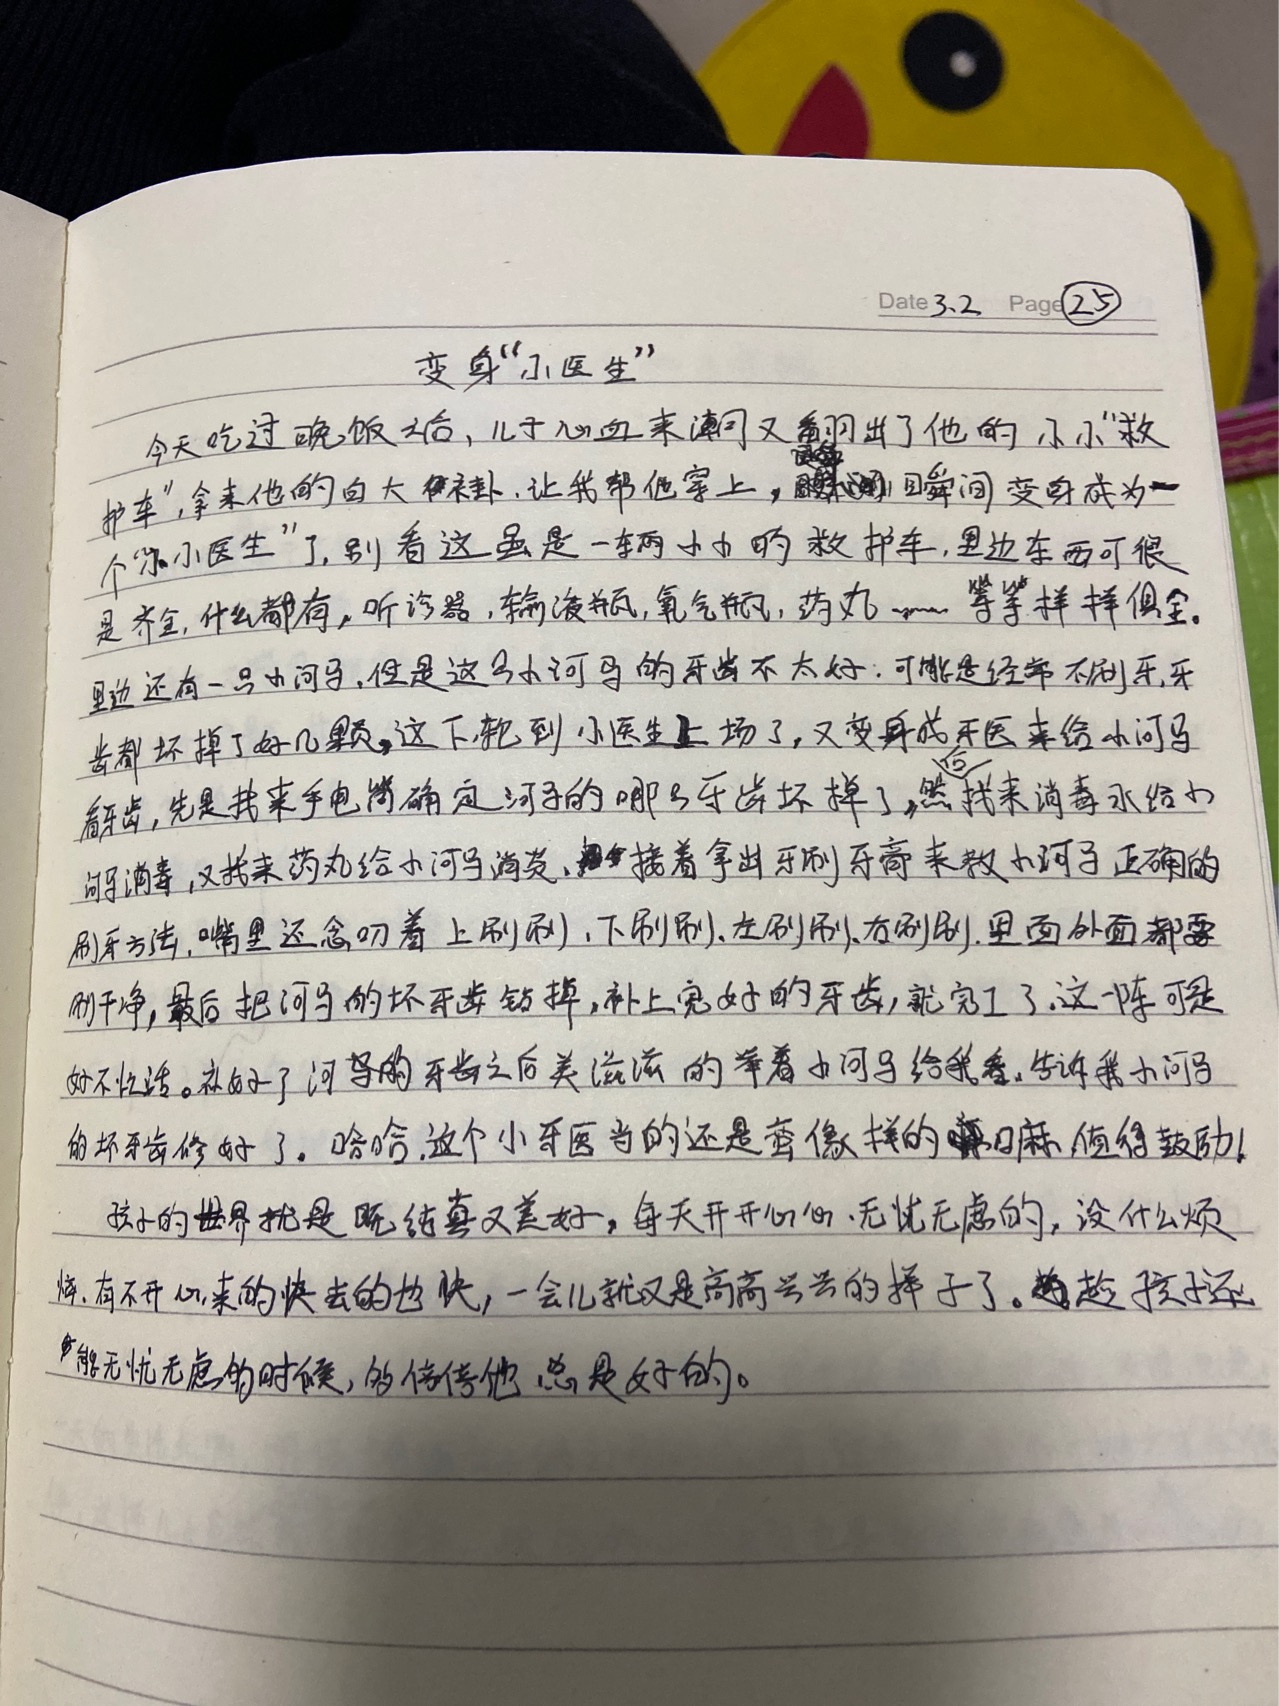 Date 3.2 Page 25
变身“小医生”
今天吃过晚饭之后，儿子心血来潮又翻出了他的小小“救
护车”，拿来他的白大褂，让我帮他穿上，瞬间变身成为一
个“小小医生”了，别看这虽是一辆小小的救护车，里边东西可很
是齐全，什么都有，听诊器，输液瓶，氧气瓶，药丸……等等样样俱全。
里边还有一只小河马，但是这只小河马的牙齿不太好：可能是经常不刷牙，牙
齿都坏掉了好几颗，这下轮到小医生上场了，又变身成牙医来给小河马
看牙齿，先是找来手电筒确定河马的哪只牙齿坏掉了，然后找来消毒水给小
河马消毒，又找来药丸给小河马消炎，接着拿出牙刷牙膏来教小河马正确的
刷牙方法，嘴里还念叨着上刷刷、下刷刷、左刷刷、右刷刷，里面外面都要
刷干净，最后把河马的坏牙齿钻掉，补上完好的牙齿，就完工了，这一阵可是
好不忙活。补好了河马的牙齿之后美滋滋的举着小河马给我看，告诉我小河马
的坏牙齿修好了。哈哈，这个小牙医当的还是蛮像样的嘛，值得鼓励！
孩子的世界就是既纯真又美好，每天开开心心、无忧无虑的，没什么烦
恼、有不开心来的快去的也快，一会儿就又是高高兴兴的样子了。趁孩子还
能无忧无虑的时候，的陪陪他总是好的。